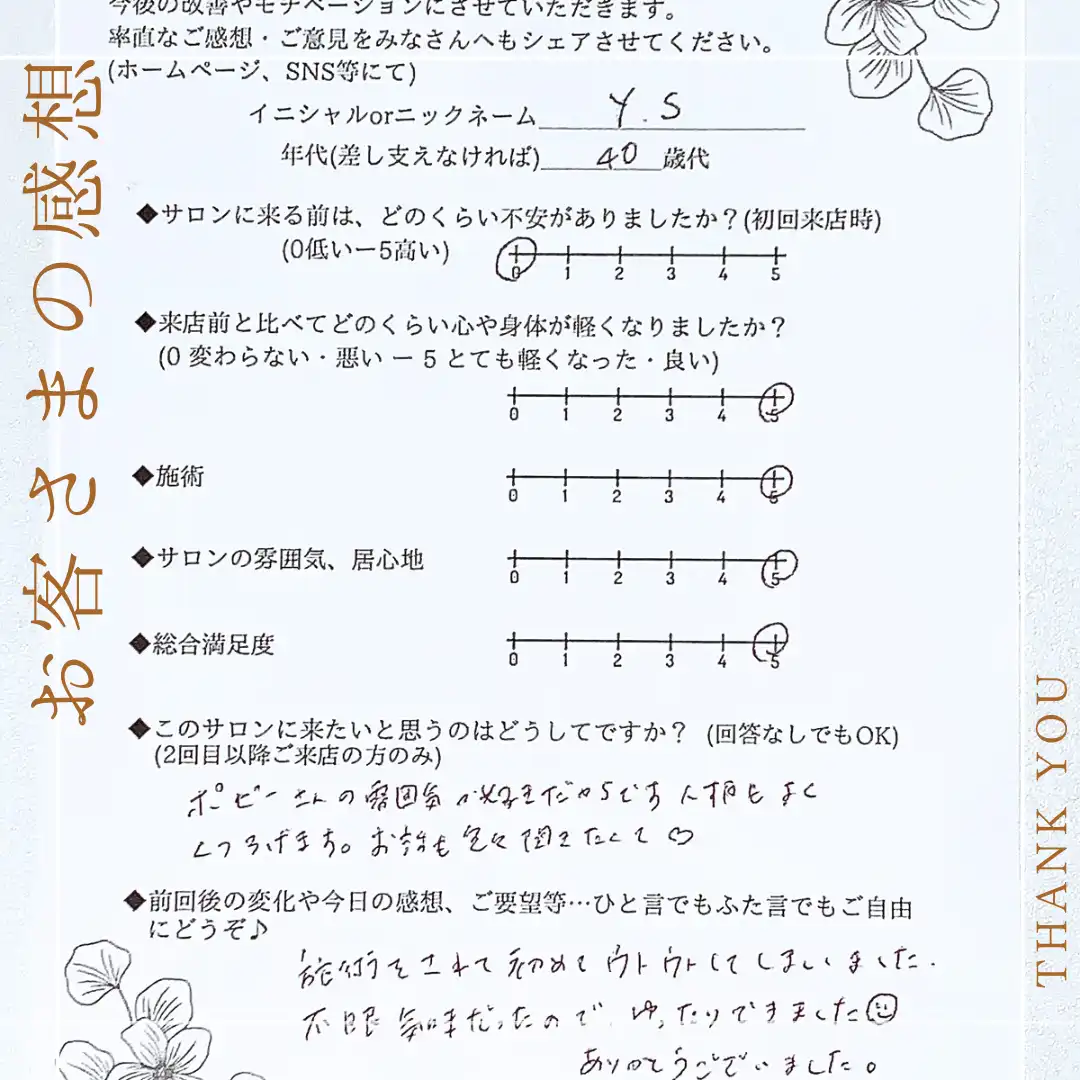 今後の改善やモチベーションにさせていただきます。
率直なご感想・ご意見をみなさんへもシェアさせてください。
(ホームページ、SNS等にて)
イニシャルorニックネーム Y.S
年代(差し支えなければ) 40 歳代
◆サロンに来る前は、どのくらい不安がありましたか？(初回来店時)
(0低いー5高い)
0 1 2 3 4 5
◆来店前と比べてどのくらい心や身体が軽くなりましたか？
(0 変わらない・悪い ー 5 とても軽くなった・良い)
0 1 2 3 4 5
◆施術
0 1 2 3 4 5
◆サロンの雰囲気、居心地
0 1 2 3 4 5
◆総合満足度
0 1 2 3 4 5
◆このサロンに来たいと思うのはどうしてですか？ (回答なしでもOK)
(2回目以降ご来店の方のみ)
ポピーさんの雰囲気が好きだからです 人柄もよく
くつろげます。お話も色々聞きたくて♡
◆前回後の変化や今日の感想、ご要望等…ひと言でもふた言でもご自由
にどうぞ♪
施術をされて初めてウトウトしてしまいました.
不眠気味だったので、ゆったりできました☺
ありがとうございました。
お客さまの感想
THANK YOU